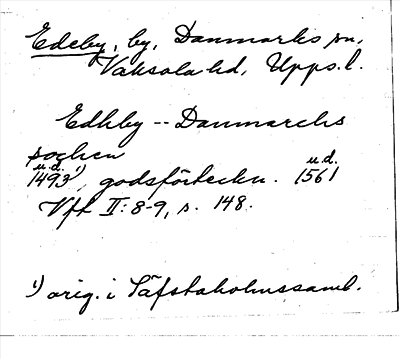 Edeby, by, Danmarks sn,
Vaksala hd, Upps. l.
Edhby -- Danmarchs
sochen
u.d. 1493 1), godsförteckn. u.d. 1561
Vft II: 8-9, s. 148.
1) orig. i Säfstaholmssaml.